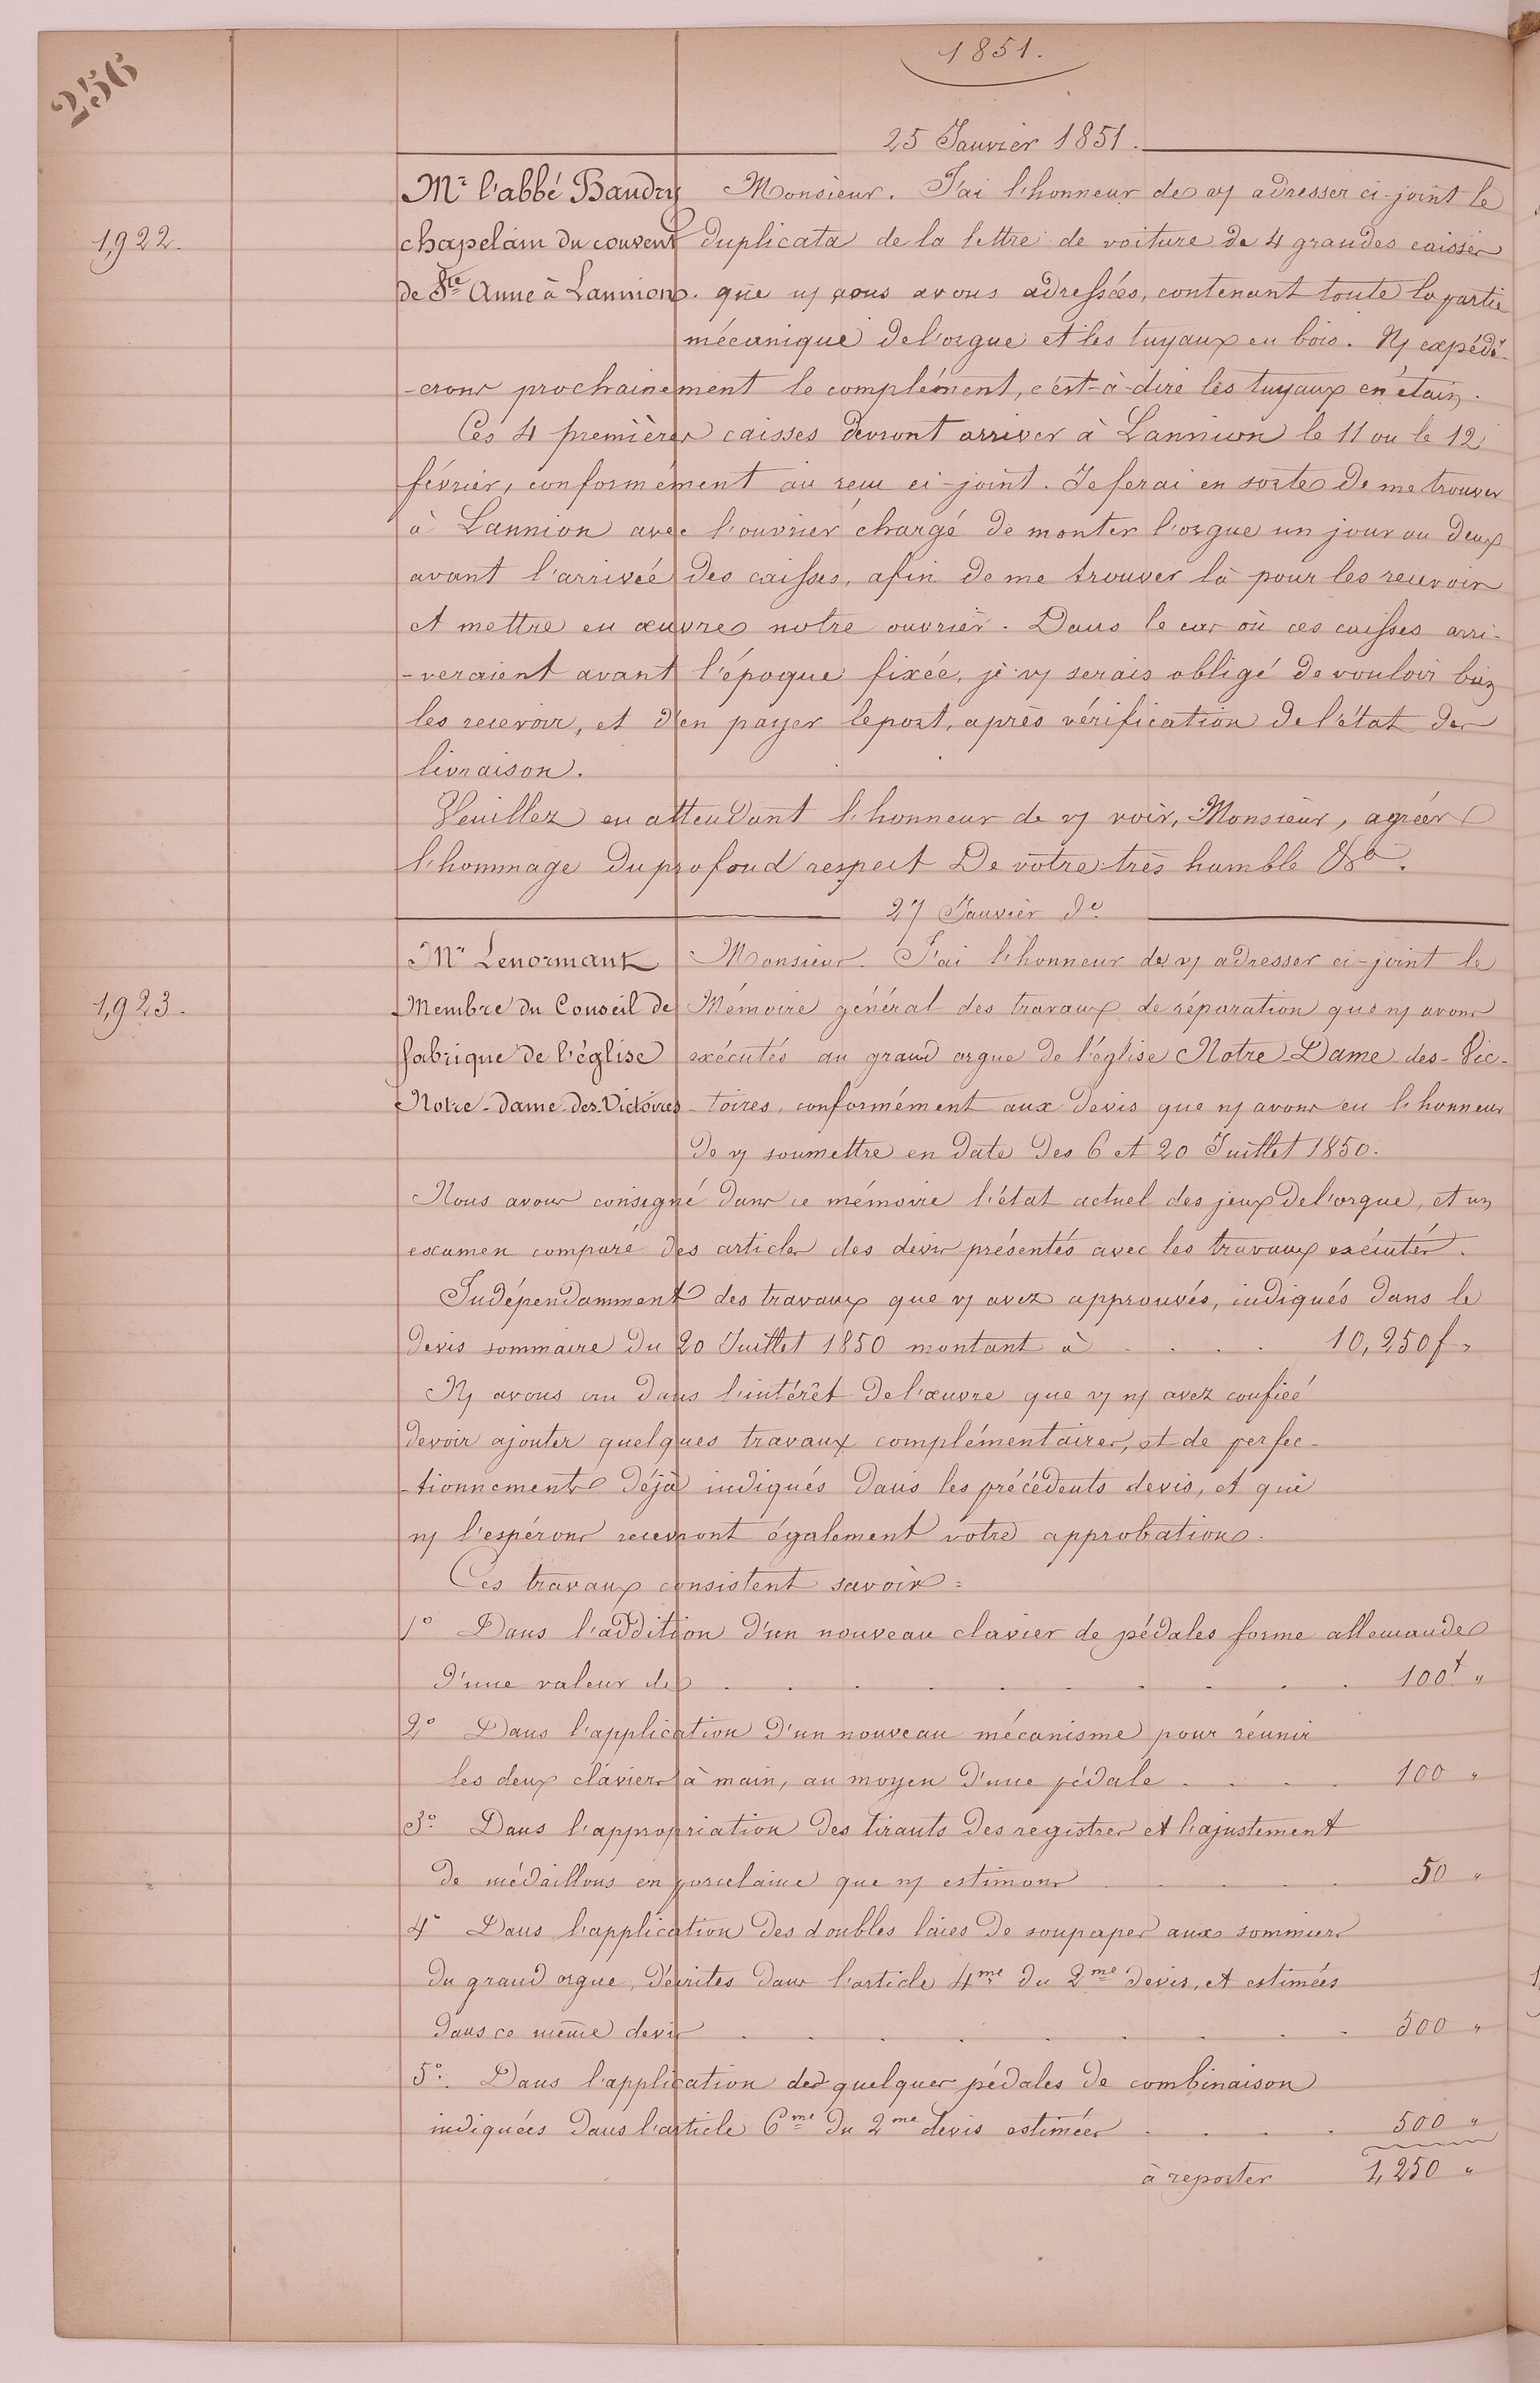 256
1851.
25 Janvier 1851.
1,922.
Mr l'abbé Baudry
chapelain du couvent
de Ste Anne à Lannion.
Monsieur. J'ai l'honneur de vs adresser ci-joint le
duplicata de la lettre de voiture de 4 grandes caisses
que ns vous avons adressées, contenant toute la partie
mécanique de l'orgue et les tuyaux en bois. Ns expédi-
-erons prochainement le complément, c'est-à-dire les tuyaux en étain.
Ces 4 premières caisses devront arriver à Lannion le 11 ou le 12
février, conformément au reçu ci-joint. Je ferai en sorte de me trouver
à Lannion avec l'ouvrier chargé de monter l'orgue un jour ou deux
avant l'arrivée des caisses, afin de me trouver là pour les recevoir
et mettre en œuvre notre ouvrier. Dans le cas où ces caisses arri-
-veraient avant l'époque fixée, je vs serais obligé de vouloir bien
les recevoir, et d'en payer le port, après vérification de l'état de
livraison.
Veuillez en attendant l'honneur de vs voir, Monsieur, agréer
l'hommage du profond respect De votre très humble &a.
27 Janvier do
1,923.
Mr Lenormant
Membre du Conseil de
fabrique de l'église
Notre-dame-des-Victoires
Monsieur. J'ai l'honneur de vs adresser ci-joint le
Mémoire général des travaux de réparation que ns avons
exécutés au grand orgue de l'église Notre-Dame-des-Vic-
-toires, conformément aux devis que ns avons eu l'honneur
de vs soumettre en date des 6 et 20 Juillet 1850.
Nous avons consigné dans ce mémoire l'état actuel des jeux de l'orgue, et un
examen comparé des articles des devis présentés avec les travaux exécutés.
Indépendamment des travaux que vs avez approuvés, indiqués dans le
devis sommaire du 20 Juillet 1850 montant à . . . . 10,250f "
Ns avons cru dans l'intérêt de l'œuvre que vs ns avez confiée
devoir ajouter quelques travaux complémentaires, et de perfec-
-tionnements déjà indiqués dans les précédents devis, et qui
ns l'espérons recevront également votre approbation.
Ces travaux consistent savoir :
1o Dans l'addition d'un nouveau clavier de pédales forme allemande
d'une valeur de . . . . . . . . . . 100f "
2o Dans l'application d'un nouveau mécanisme pour réunir
les deux claviers à main, au moyen d'une pédale . . . . 100 "
3o Dans l'appropriation des tirants des registres et l'ajustement
de médaillons en porcelaine que ns estimons . . . . 50 "
4o Dans l'application des doubles laies de soupapes aux sommiers
du grand orgue, décrites dans l'article 4me du 2me devis, et estimées
dans ce même devis . . . . . . . . . 500 "
5o. Dans l'application de quelques pédales de combinaison
indiquées dans l'article 6me du 2me devis estimées . . . . 500 "
à reporter 1,250 "